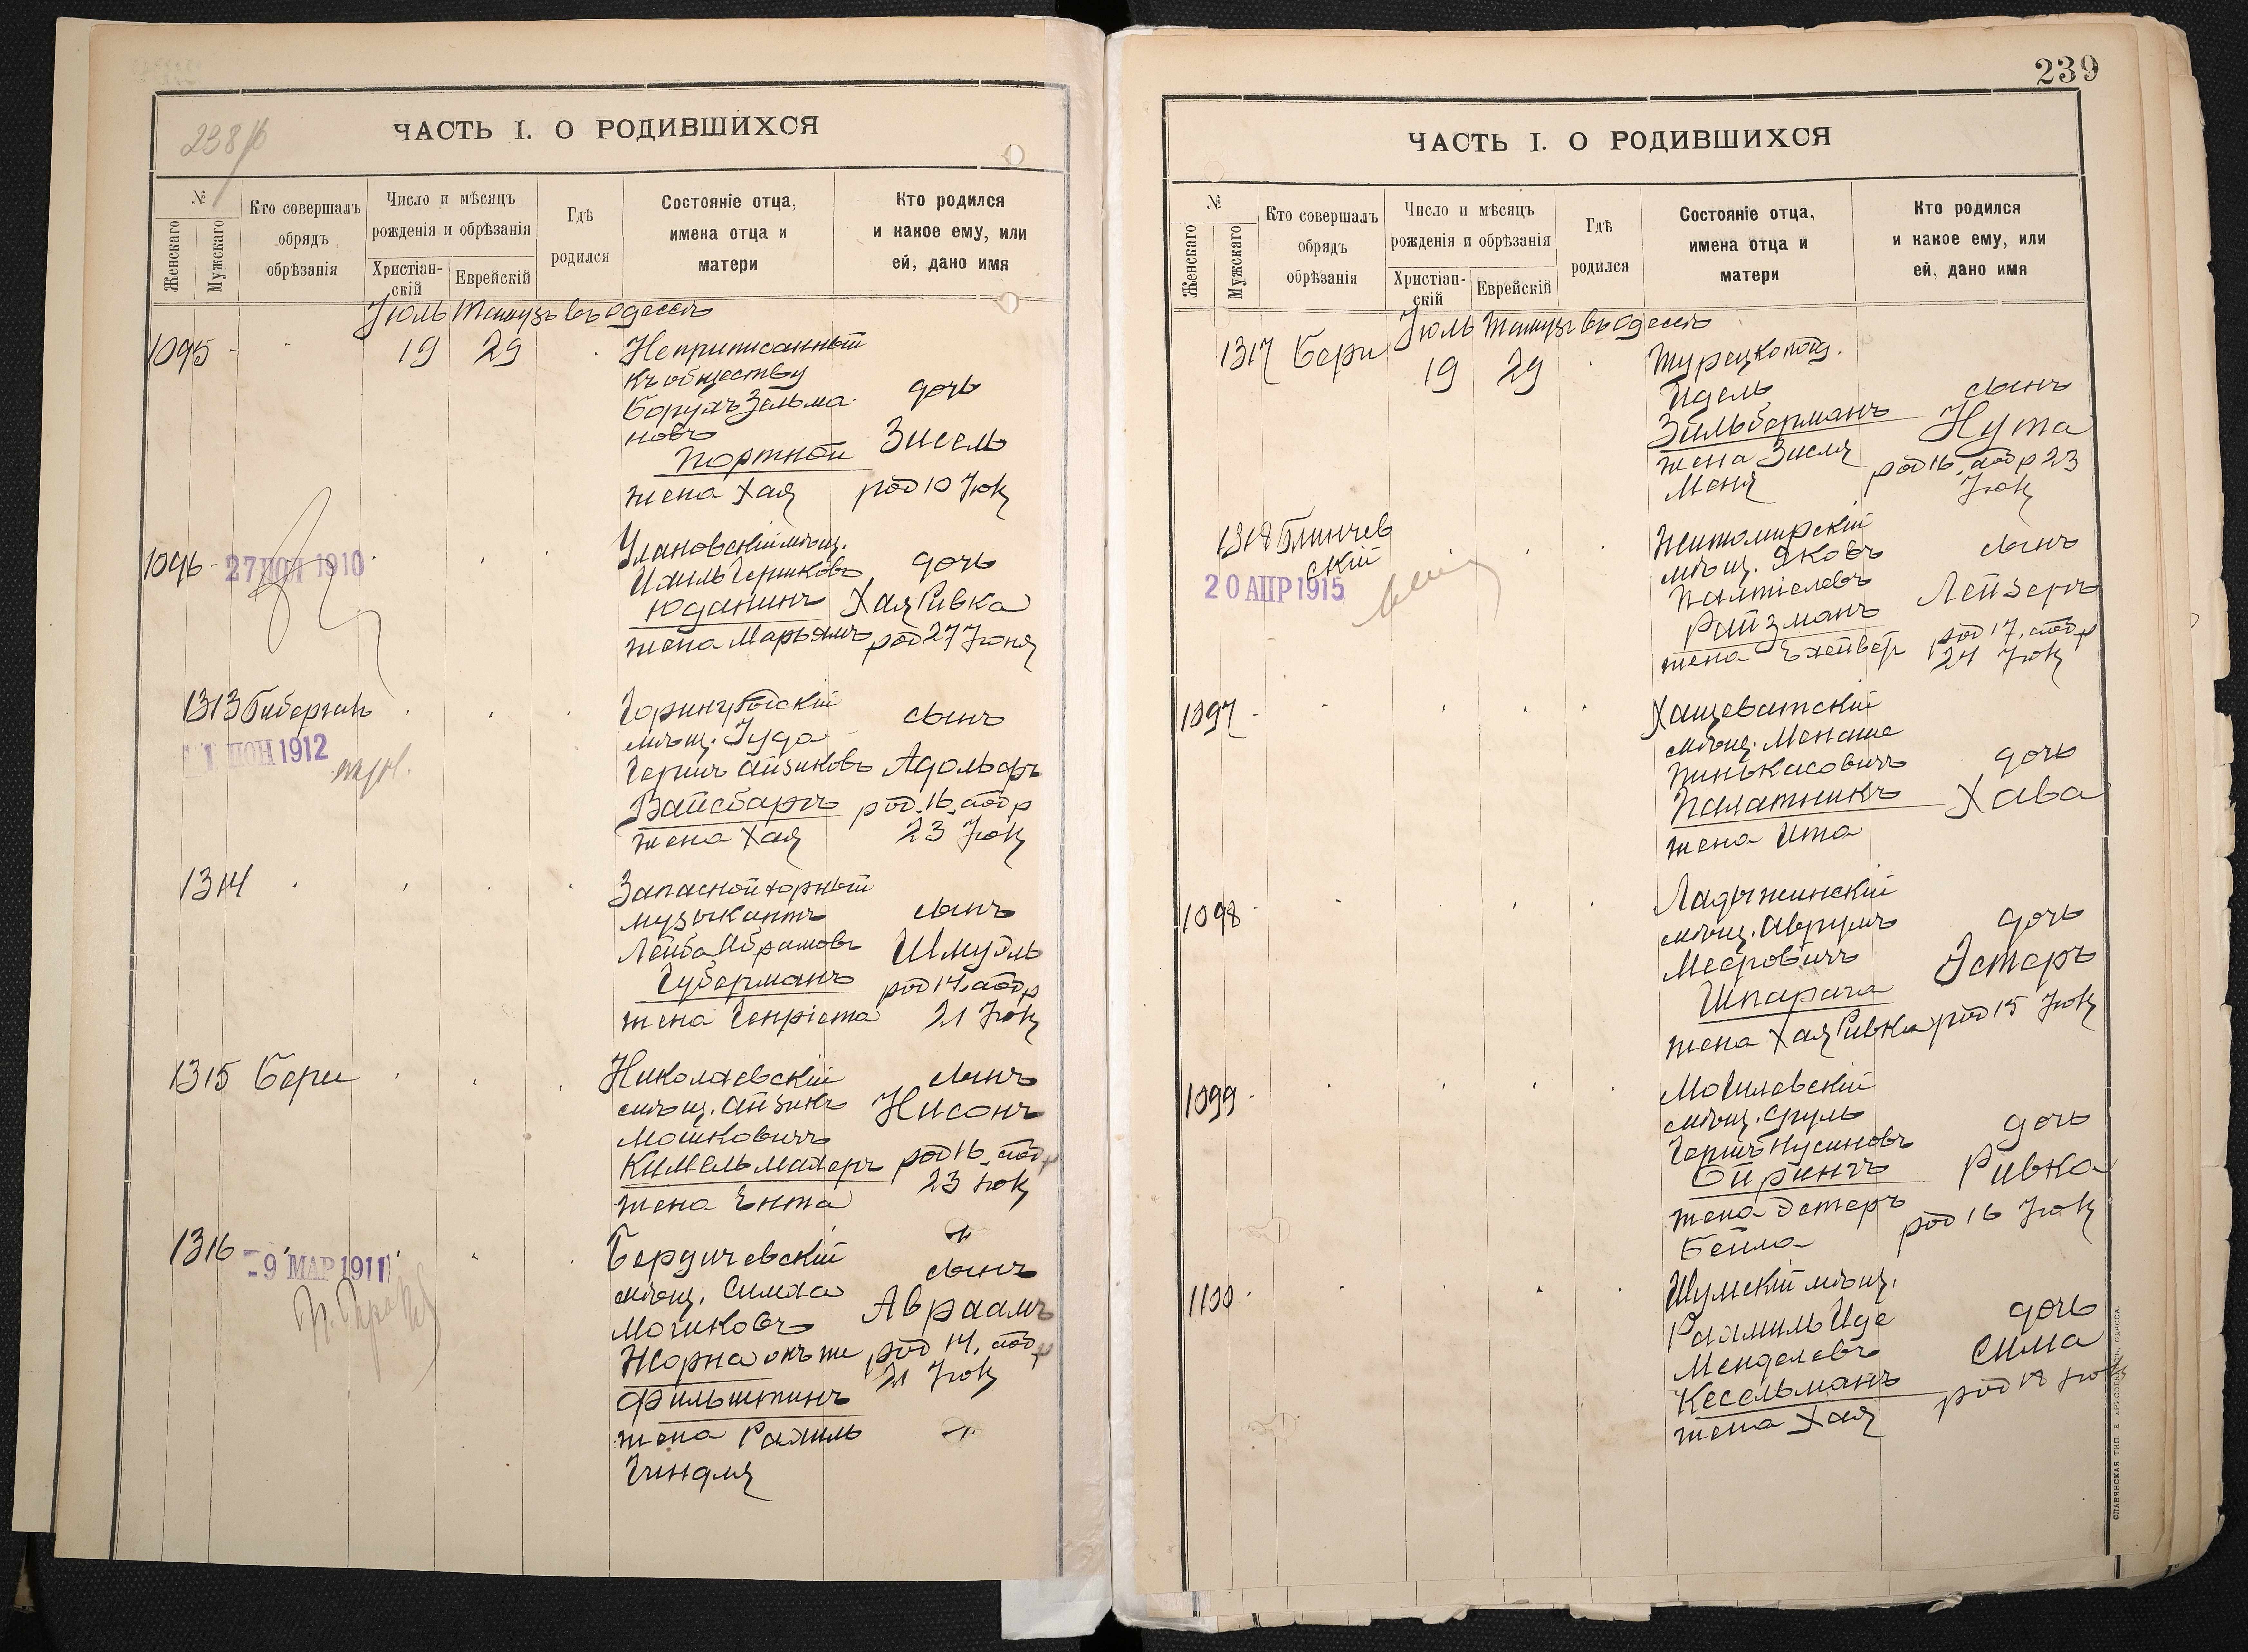 238 об
ЧАСТЬ I. О РОДИВШИХСЯ
№
Женскаго
Мужскаго
Кто совершалъ
обрядъ
обрѣзанія
Число и мѣсяцъ
рожденія и обрѣзанія
Христіан-
скій
Еврейскій
Гдѣ
родился
Состояніе отца,
имена отца и
матери
Кто родился
и какое ему, или
ей, дано имя
Іюль Тамузъ въ Одессѣ
1095
19
29
Неприписанный
къ обществу
Борухъ Зельма
новъ
Портной
жена Хая
дочь
Зисель
род 10 Іюля
1096
27 1910
Улановскій мѣщ.
Герниковъ
Юданинъ
жена Марьямъ
дочь
Хая Ривка
род 27 Іюня
1313
Гиберганъ
1 ІЮН 1912
Горинградскій
мѣщ. Іуда
Гершъ Айзиковъ
Вайсбаргъ
жена Хая
сынъ
Адольфъ
род. 16, 
23 Іюля
1314
Запасной хорный
музыкантъ
Лейба Абрамовъ
Губерманъ
жена Генріета
сынъ
Шмуэль
род 14,
21 Іюля
1315
Бери
Николаевскій
мѣщ. Айзикъ
Мошковичъ
Кимельмахеръ
жена Ента
сынъ
Нисонъ
род 16,
23 Іюля
1316
9 МАР 1911
Бердичевскій
мѣщ. Симха
Мошковъ
Жорна онъ же
Фильштинъ
жена Рахиль
Гиндля
сынъ
Авраамъ
род 14,
21 Іюля
239
ЧАСТЬ I. О РОДИВШИХСЯ
№
Женскаго
Мужскаго
Кто совершалъ
обрядъ
обрѣзанія
Число и мѣсяцъ
рожденія и обрѣзанія
Христіан-
скій
Еврейскій
Гдѣ
родился
Состояніе отца,
имена отца и
матери
Кто родился
и какое ему, или
ей, дано имя
Іюль Тамузъ въ Одессѣ
1317
Бери
19
29
Турецкопод.
Идель
Зильберманъ
жена Зисля
Меня
сынъ
Нута
род 16, обр 23
Іюля
1318
Блинчев
скій
20 АПР 1915
Житомирскій
мѣщ. Яковъ
Палтіелевъ
Ройзманъ
жена
сынъ
Лейзеръ
род 17,
24 Іюля
1097
Хащеватскій
мѣщ. Менаше
Пинькасовичъ
Палатникъ
жена Ита
дочь
Хава
1098
Ладыжинскій
мѣщ. Аврумъ
Мееровичъ
Шпарага
жена Хая Ривка
дочь
Эстеръ
род 15 Іюля
1099
Могилевскій
мѣщ. Сруль
Гершъ Нусиновъ
Ойрингъ
жена Эстеръ
Бейла
дочь
Ривка
род 16 Іюля
1100
Шумскій мѣщ.
Рахмиль Иде
Менделевъ
Кесельманъ
жена Хая
дочь
Сима
род 18 Іюля
СЛАВЯНСКАЯ ТИП. Е. ХРИСОГЕЛОСЪ, ОДЕССА